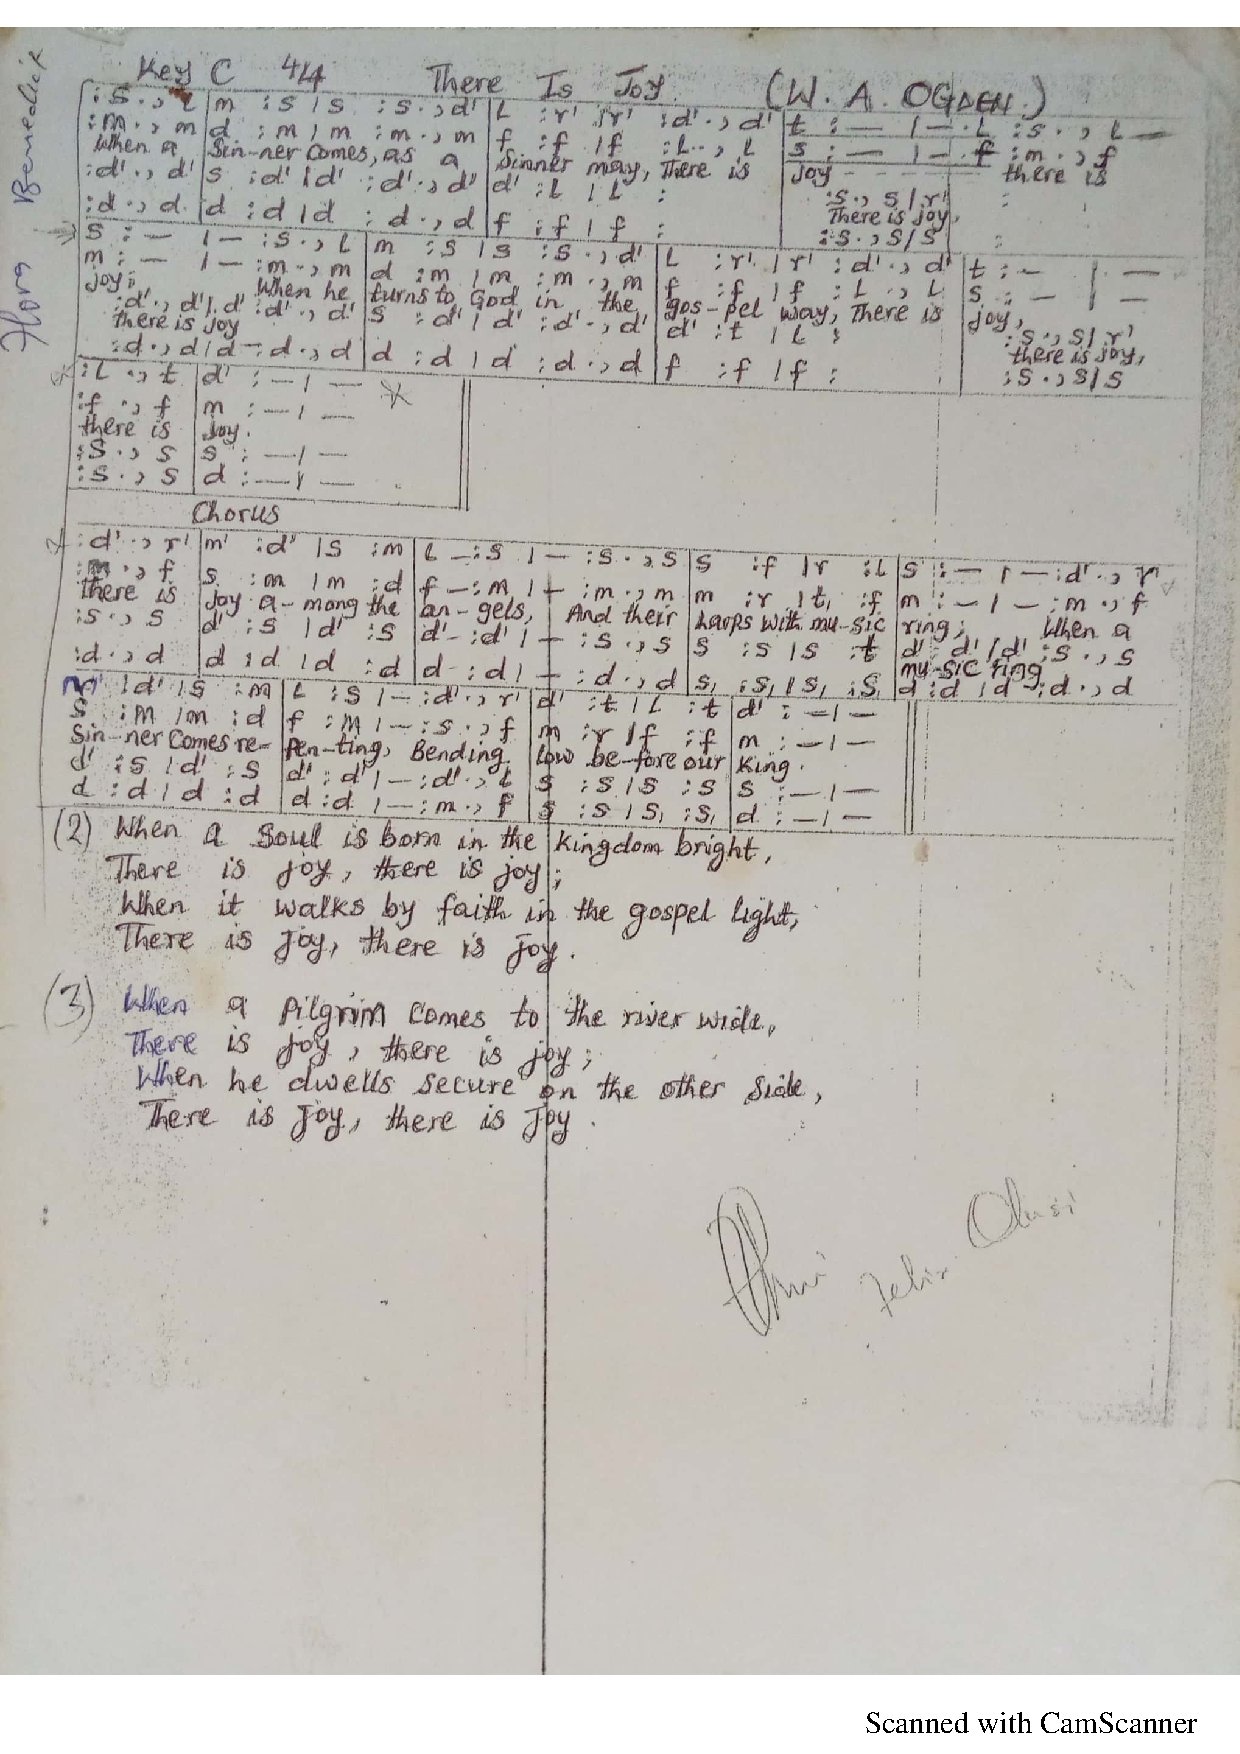 Key C 4/4 There Is Joy (W. A. OGDEN.)
:s .,L |m :s |s :s .,d' |L :r' |r' :d' .,d' |t :— |— .L :s .,L —
:m .,m |d :m |m :m .,m |f :f |f :L .,L |s :— |— .f :m .,f
When a Sin-ner comes, as a Sinner may, There is Joy - - - - - there is
:d' .,d' |s :d' |d' :d' .,d' |d' :L |L : :s .,s |r' :
There is joy,
:d .,d |d :d |d :d .,d |f :f |f : :s .,s |s :
s :— |— :s .,L |m :s |s :s .,d' |L :r' |r' :d' .,d' |t :— |—
m :— |— :m .,m |d :m |m :m .,m |f :f |f :L .,L |s :— |—
joy; When he turns to God in the gos-pel way, There is joy,
:d' .,d' |d' :d' .,d' |s :d' |d' :d' .,d' |d' :t |L : :s .,s |r'
there is joy there is joy,
:d .,d |d — :d .,d |d :d |d :d .,d |f :f |f : :s .,s |s
:L .,t |d' :— |—
:f .,f |m :— |—
there is Joy.
:s .,s |s :— |—
:s .,s |d :— |—
Chorus
:d' .,r' |m' :d' |s :m |L — :s |— :s .,s |s :f |r :L |s :— |— :d' .,r'
:m .,f |s :m |m :d |f — :m |— :m .,m |m :r |t, :f |m :— |— :m .,f
there is joy a-mong the an-gels, And their harps with mu-sic ring; When a
:s .,s |d' :s |d' :s |d' — :d' |— :s .,s |s :s |s :t |d' :d' |d' :s .,s
mu-sic ring
:d .,d |d :d |d :d |d — :d |— :d .,d |s, :s, |s, :s, |d :d |d :d .,d
m' |d' |s :m |L :s |— :d' .,r' |d' :t |L :t |d' :— |—
s :m |m :d |f :m |— :s .,f |m :r |f :f |m :— |—
Sin-ner comes re- Pen-ting, Bending low be-fore our King.
d' :s |d' :s |d' :d' |— :d' .,L |s :s |s :s |s :— |—
d :d |d :d |d :d |— :m .,f |s :s |s, :s, |d :— |—
(2) When a soul is born in the kingdom bright,
There is joy, there is joy;
When it walks by faith in the gospel light,
There is joy, there is joy.
(3) When a Pilgrim comes to the river wide,
There is joy, there is joy;
When he dwells secure on the other side,
There is joy, there is Joy.
Felix Olusi
Scanned with CamScanner